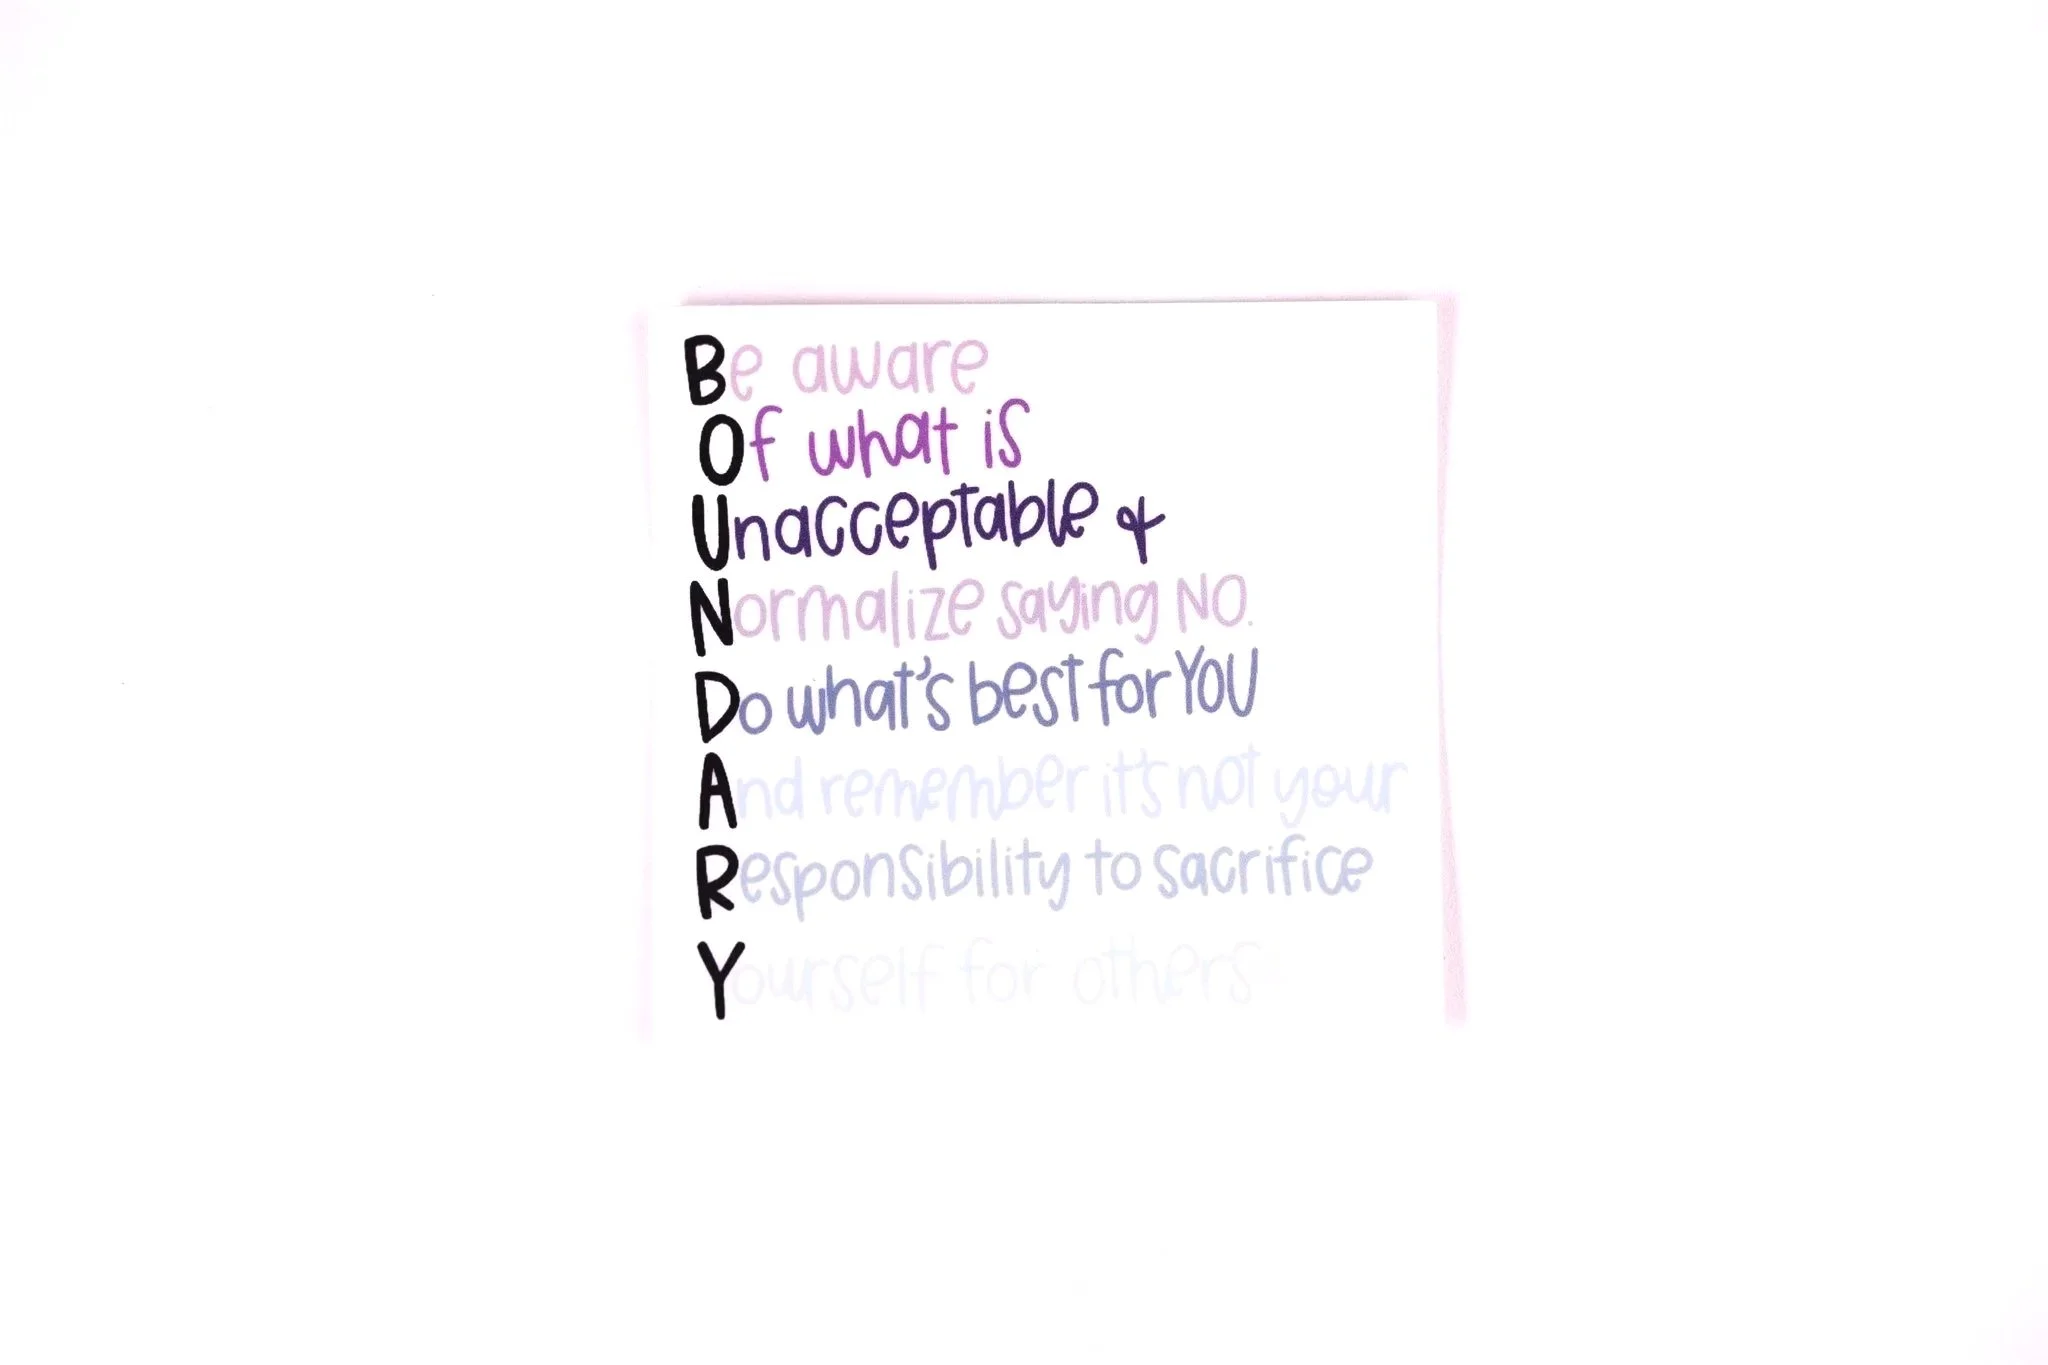 Be aware
Of what is
Unacceptable &
Normalize saying NO.
Do what's best for YOU
And remember it's not your
Responsibility to sacrifice
Yourself for others